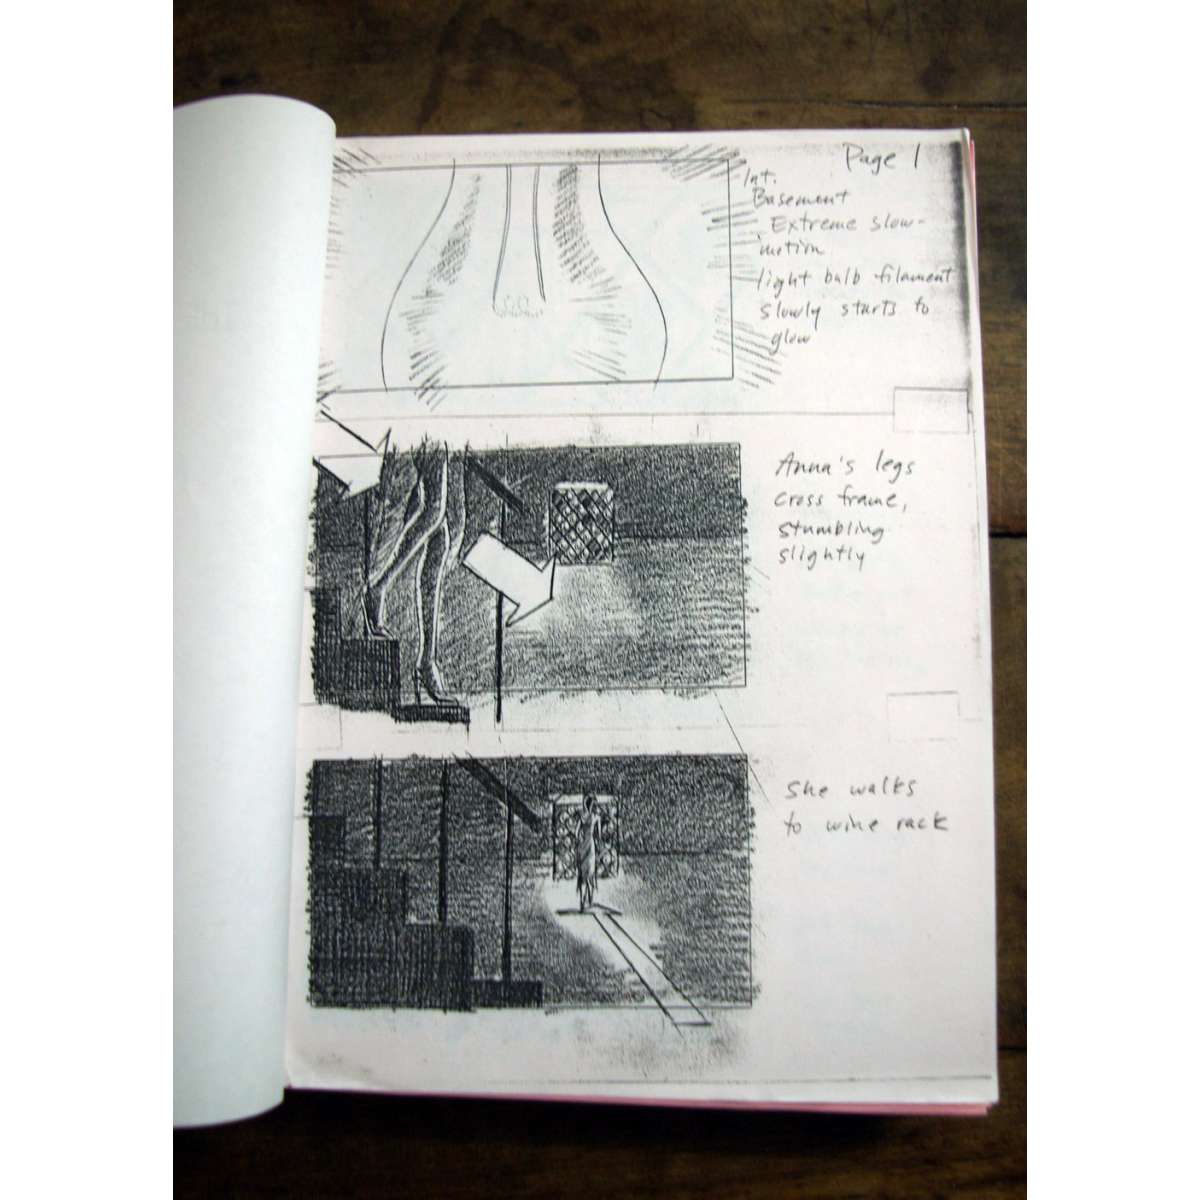 Page 1
Int.
Basement
Extreme slow-
motion
light bulb filament
slowly starts to
glow
Anna's legs
cross frame,
stumbling
slightly
She walks
to wine rack